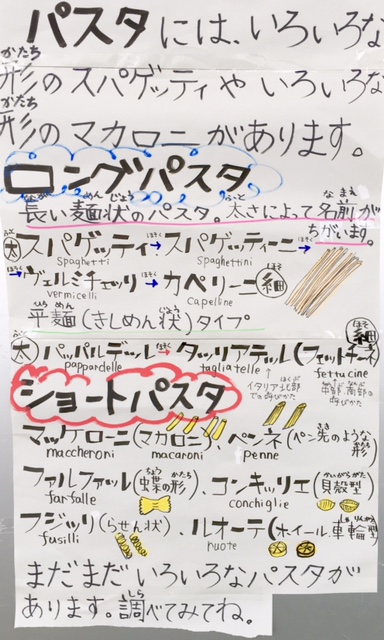 パスタには、いろいろな
形のスパゲッティや いろいろな
形のマカロニがあります。
ロングパスタ
長い麺状のパスタ。太さによって名前が
ちがいます。
太 スパゲッティ→スパゲッティーニ→
spaghetti spaghettini
→ヴェルミチェッリ→カペリーニ 細
vermicelli capelline
平麺(きしめん状)タイプ
太 パッパルデッレ→タッリアテッレ(フェットチーネ) 細
pappardelle tagliatelle fettucine
↑イタリア北部での呼びかた 中部、南部の呼びかた
ショートパスタ
マッケローニ(マカロニ)、ペンネ(ペン先のような形)
maccheroni macaroni penne
ファルファッレ(虫喋の形)、コンキッリエ(貝殻型)
farfalle conchiglie
フジッリ(らせん状)、ルオーテ(ホイール、車輪型)
fusilli ruote
まだまだいろいろなパスタが
あります。調べてみてね。